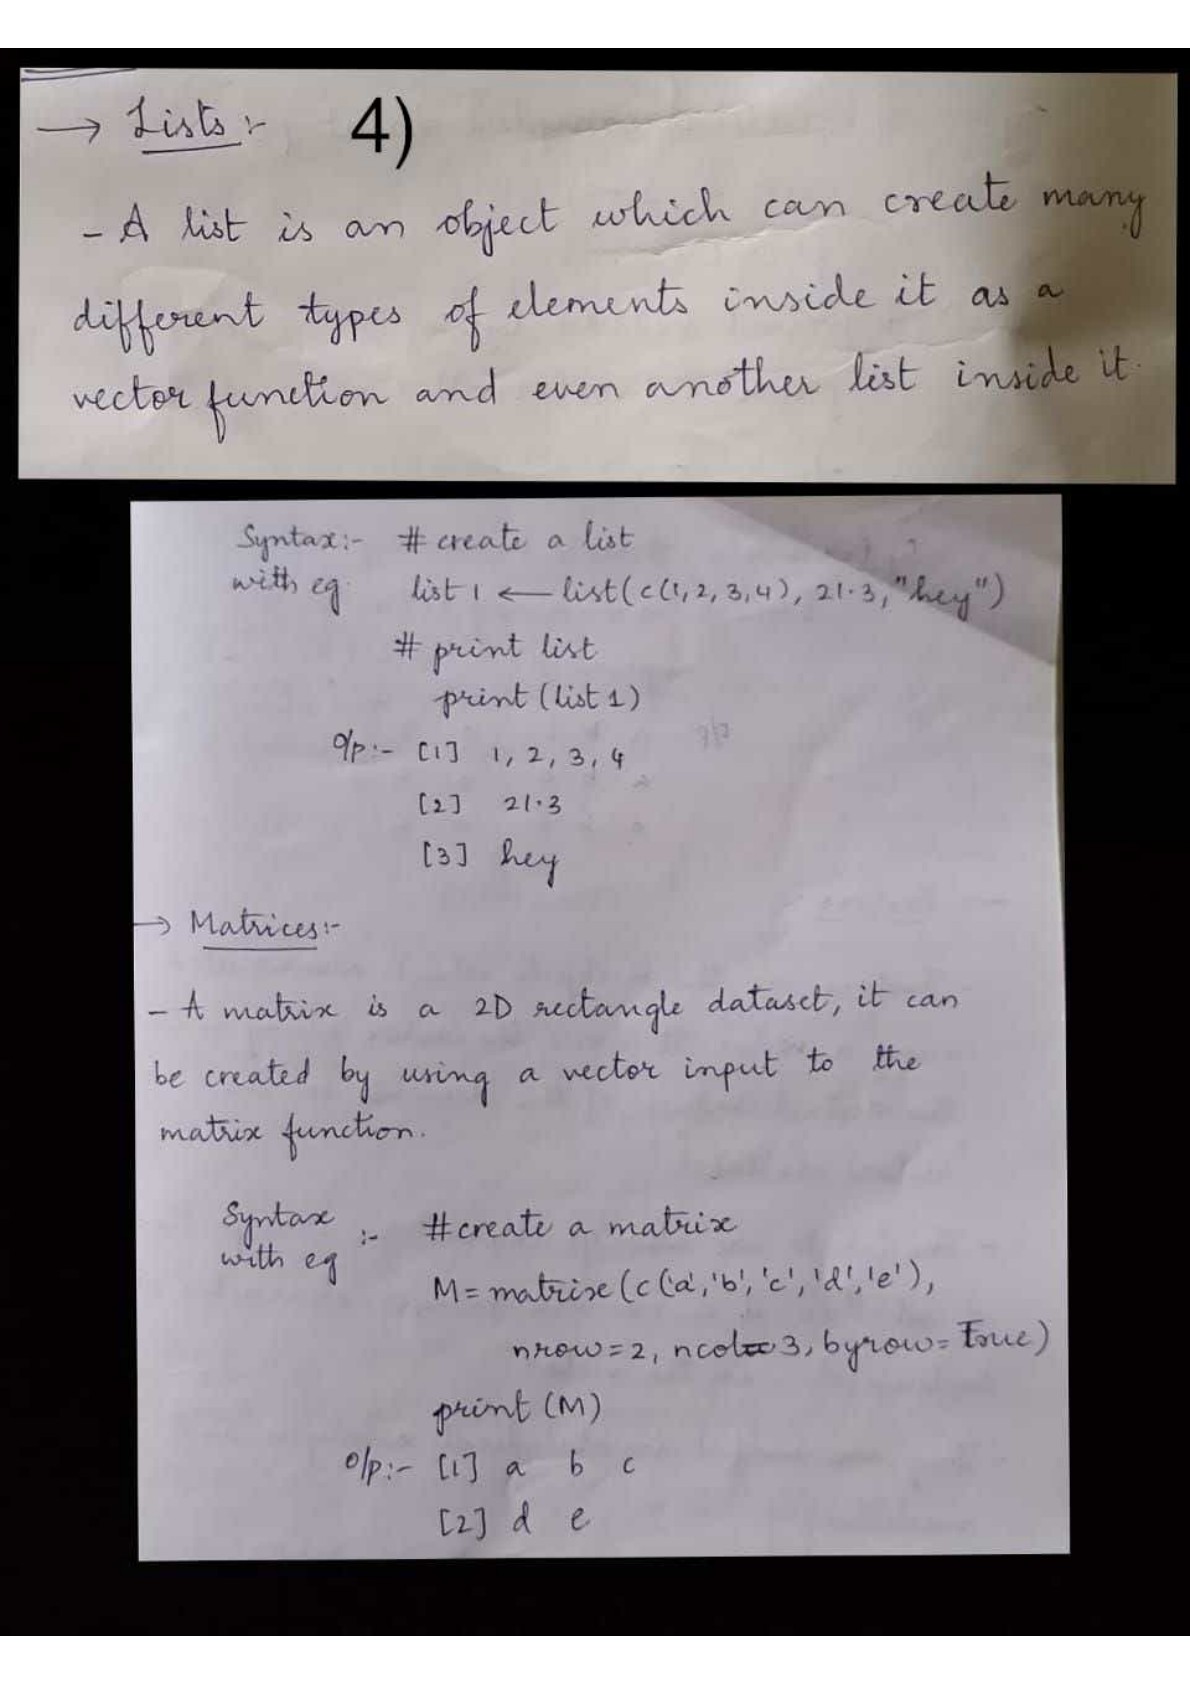 → Lists :- 4)
- A list is an object which can create many
different types of elements inside it as a
vector function and even another list inside it.
Syntax:- # create a list
with eg. list 1 ← list(c(1,2,3,4), 21.3, "hey")
# print list
print (list 1)
o/p:- [1] 1, 2, 3, 4
[2] 21.3
[3] hey
→ Matrices:-
- A matrix is a 2D rectangle dataset, it can
be created by using a vector input to the
matrix function.
Syntax :- #create a matrix
with eg
M = matrix (c ('a', 'b', 'c', 'd', 'e'),
nrow = 2, ncol = 3, byrow = True)
print (M)
o/p:- [1] a b c
[2] d e